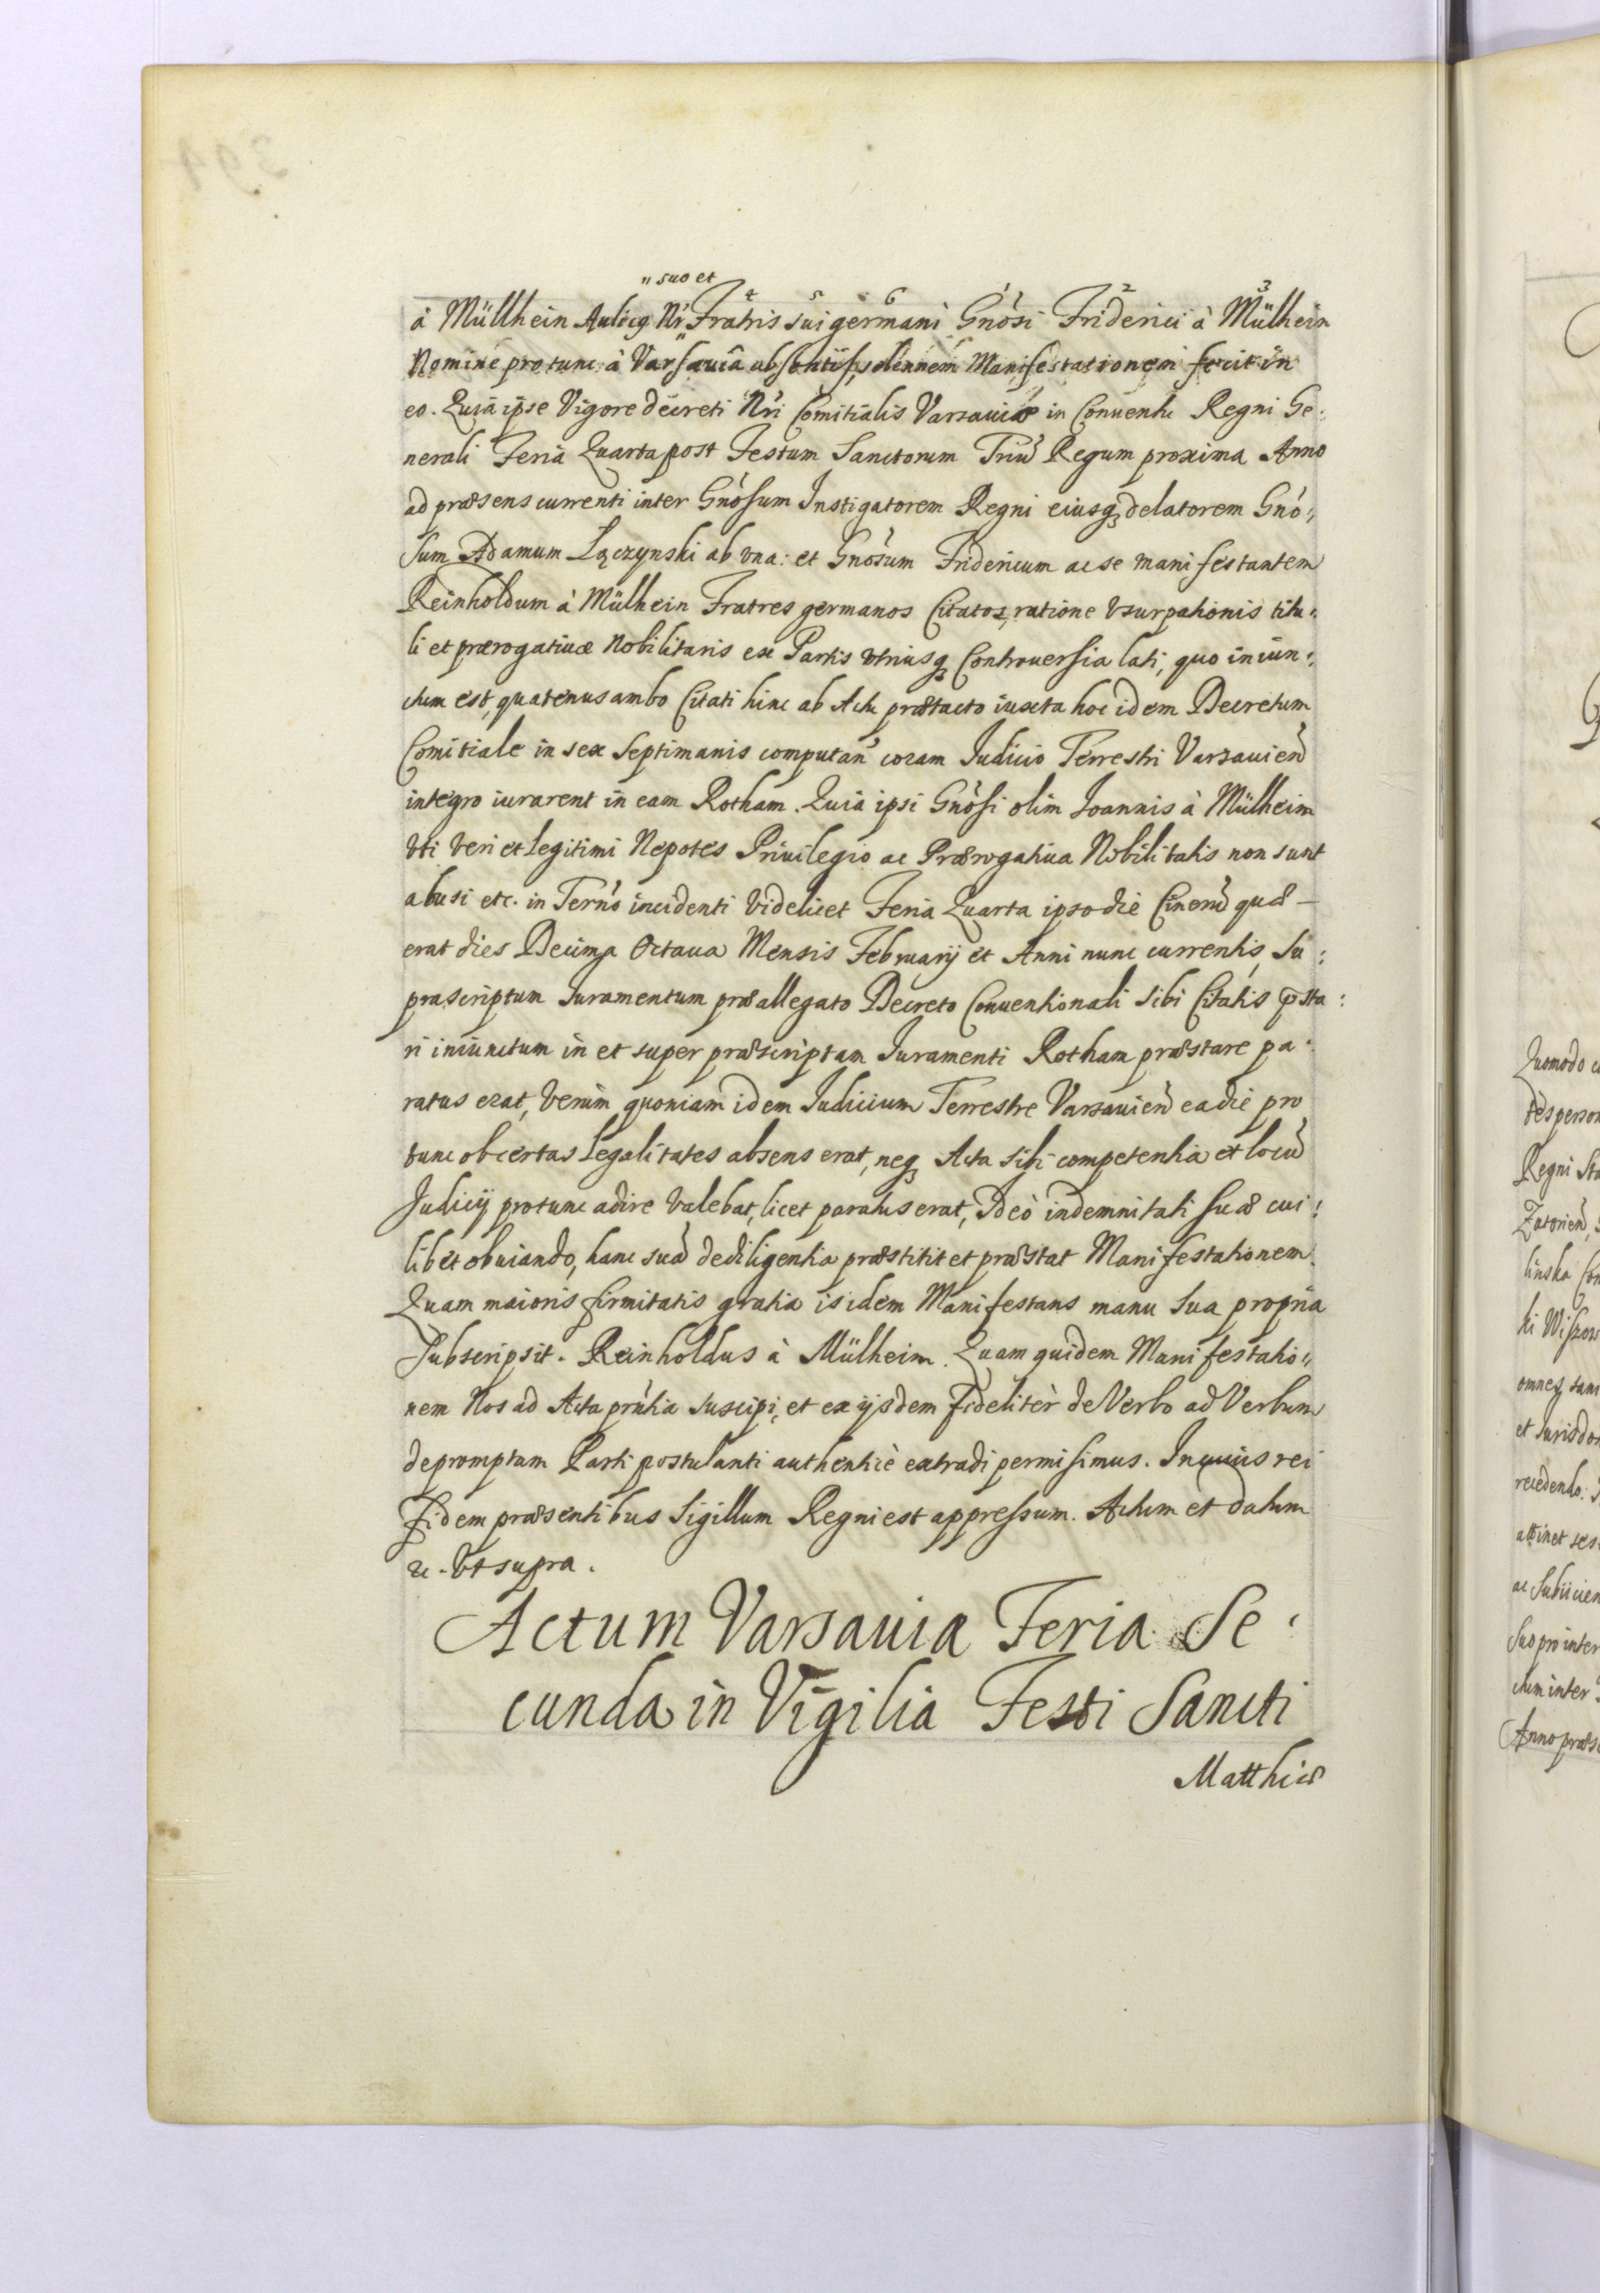 " suo et
4 5 6 1 2 3
à Müllhein Aulicq Nr Fratris sui germani Gnosi Friderici à Mülhein
Nomine protunc à Varsauia absentis, solennem Manifestationem fecit in
eo. Quia ipse Vigore decreti Nri Comitialis Varsauiæ in Conuentu Regni Ge:
nerali Feria Quarta post Festum Sanctorum Triũ Regum proxima Anno
ad præsens currenti inter Gnosum Instigatorem Regni eiusq delatorem Gno:
sum Adamum Lączynski ab vna: et Gnosum Fridericum ac se manifestantem
Reinholdum à Mülhein Fratres germanos Citatos, ratione vsurpationis titu:
li et prærogatiuæ Nobilitaris ex Partis vtriusq Controuersia lati, quo iniun:
ctum est, quatenus ambo Citati hinc ab Actu prætacto iuxta hoc idem Decretum
Comitiale in sex Septimanis computan coram Iudicio Terrestri Varsauień
integro iurarent in eam Rotham. Quia ipsi Gnosi olim Ioannis à Mülheim
vti veri et Legitimi Nepotes Priuilegio ac Prærogatiua Nobilitatis non sunt
abusi etc. in Terno incidenti videlicet Feria Quarta ipso die Cinerũ quæ —
erat dies Decima Octaua Mensis February et Anni nunc currentis, Su:
prascriptum Iuramentum præallegato Decreto Conuentionali sibi Citatis p̄sta:
ri iniunctum in et super præscriptam Iuramenti Rotham præstare pa:
ratus erat, verùm quoniam idem Iudicium Terrestre Varsauień ea die pro
tunc ob certas Legalitates absens erat, neq Acta sibi competentia et locũ
Iudicij protunc adire valebat, licet paratus erat, Ideò indemnitati suæ cui:
libet obuiando, hanc suã de diligentia præstitit et præstat Manifestationem.
Quam maioris firmitatis gratia is idem Manifestans manu sua propria
Subscripsit. Reinholdus à Mülheim. Quam quidem Manifestatio:
nem Nos ad Acta prñtia suscipi, et ex ijsdem fideliter de Verbo ad Verbum
depromptam Parti postulanti authenticè extradi permisimus. In cuius rei
Fidem præsentibus Sigillum Regni est appressum. Actum et datum
etc. vt supra.
Actum Varsauia Feria Se:
cunda in Vigilia Festi Sancti
Matthiæ
Quomodo
Regni
linska
omneq
Anno